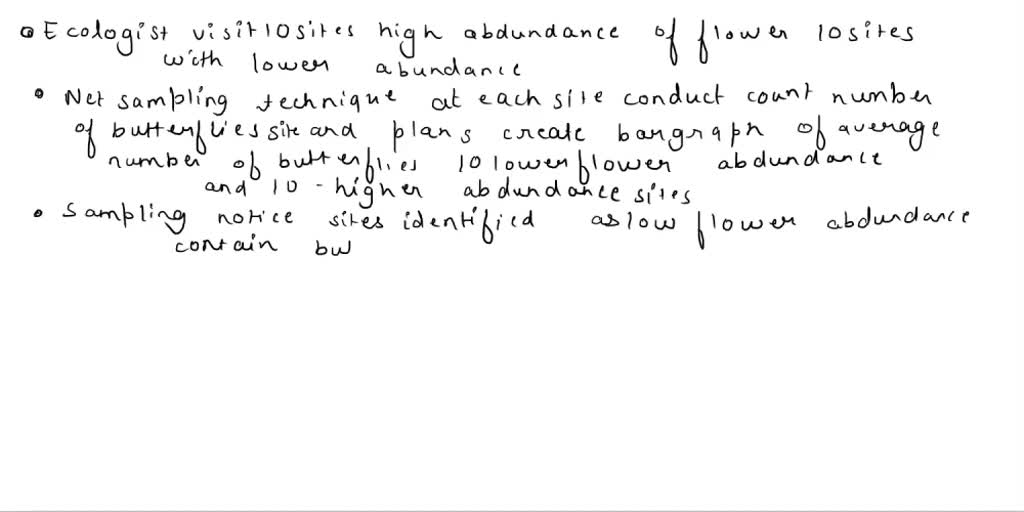 • Ecologist visit 10 sites high abdundance of flower 10 sites
with lower abundance
• Net sampling technique at each site conduct count number
of butterflies site and plans create bargraph of average
number of butterflies 10 lower flower abdundance
and 10 - higher abdundance sites
• Sampling notice sites identified as low flower abdundance
contain bu